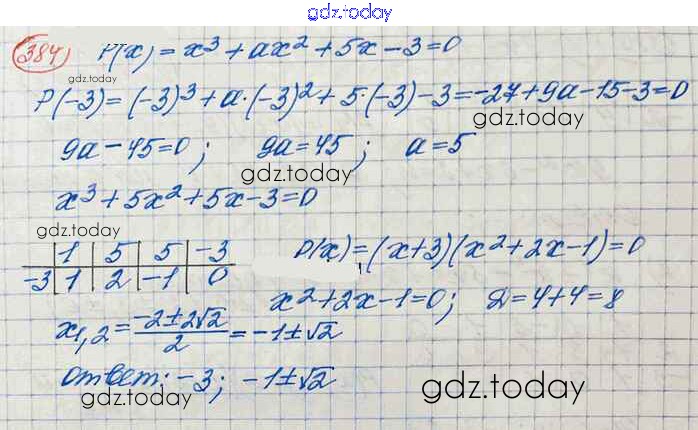 gdz.today
384) P(x) = x³ + ax² + 5x - 3 = 0
gdz.today
P(-3) = (-3)³ + a·(-3)² + 5·(-3) - 3 = -27 + 9a - 15 - 3 = 0
gdz.today
9a - 45 = 0; 9a = 45; a = 5
gdz.today
x³ + 5x² + 5x - 3 = 0
gdz.today
1 | 5 | 5 | -3
-3 | 1 | 2 | -1 | 0
P(x) = (x+3)(x² + 2x - 1) = 0
x² + 2x - 1 = 0; D = 4 + 4 = 8
x₁,₂ = (-2 ± 2√2)/2 = -1 ± √2
Ответ: -3; -1 ± √2
gdz.today
gdz.today